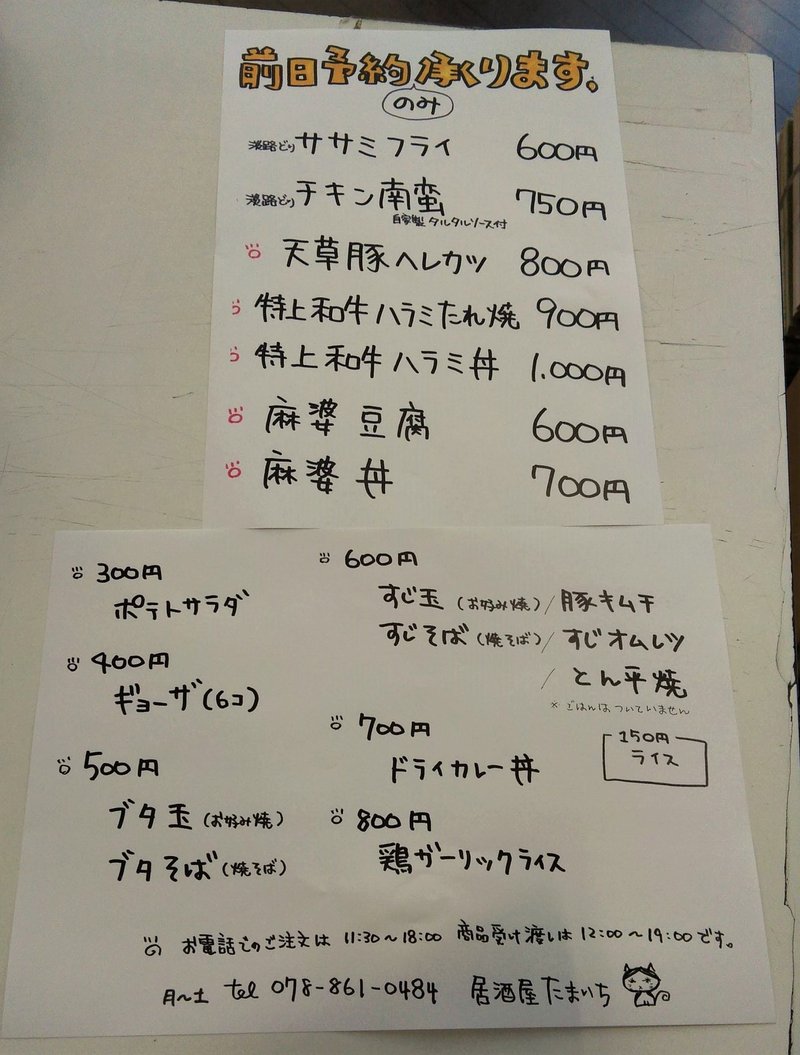 前日予約承ります。
のみ
淡路どり ササミフライ 600円
淡路どり チキン南蛮 750円
自家製 タルタルソース付
天草豚ヘレカツ 800円
特上和牛ハラミたれ焼 900円
特上和牛ハラミ丼 1.000円
麻婆豆腐 600円
麻婆丼 700円
300円
ポテトサラダ
400円
ギョーザ(6コ)
500円
ブタ玉(お好み焼)
ブタそば(焼そば)
600円
すじ玉(お好み焼)/豚キムチ
すじそば(焼そば)/すじオムレツ
/とん平焼
* ごはんはついていません
700円
ドライカレー丼
150円
ライス
800円
鶏ガーリックライス
お電話でのご注文は 11:30〜18:00 商品受け渡しは 12:00〜19:00です。
月〜土 tel 078-861-0484 居酒屋たまいち